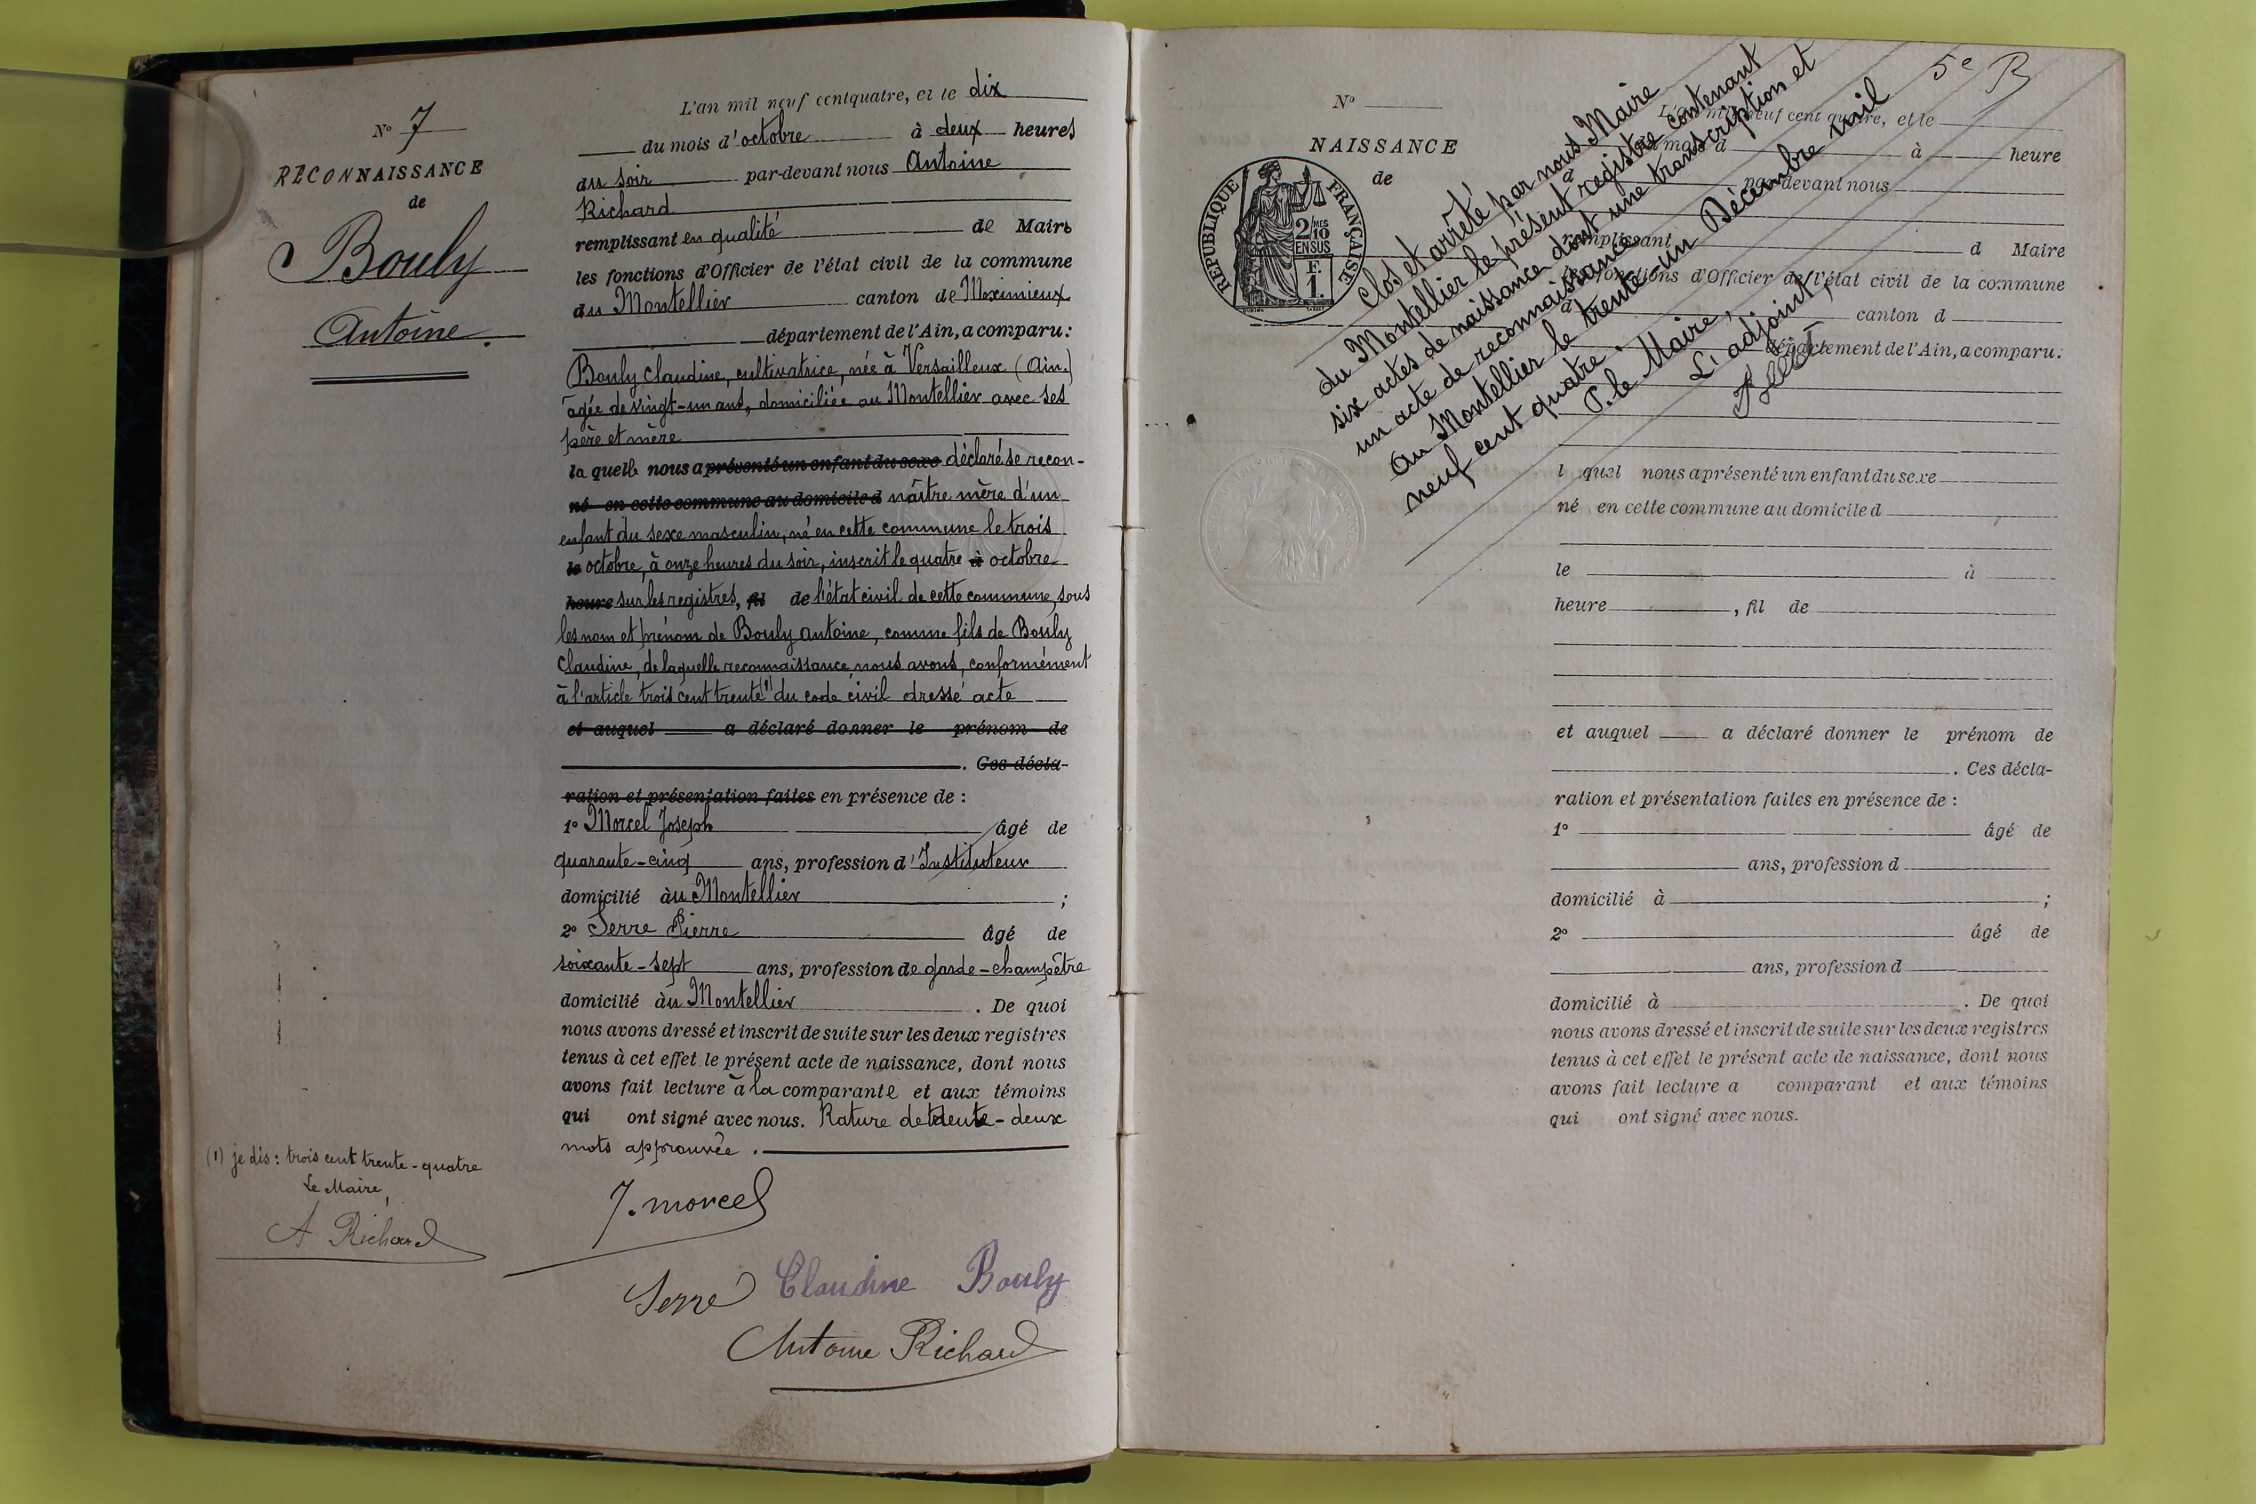 N° 7
RECONNAISSANCE
de
Bouly
Antoine.
L'an mil neuf cent quatre, et le dix
du mois d'octobre à deux heures
du soir par-devant nous Antoine
Richard
remplissant en qualité de Maire
les fonctions d'Officier de l'état civil de la commune
du Montellier canton de Meximieux
département de l'Ain, a comparu :
Bouly Claudine, cultivatrice, née à Versailleux (Ain.)
âgée de vingt-un ans, domiciliée au Montellier avec ses
père et mère
la quelle nous a présenté un enfant du sexe déclaré se recon-
né en cette commune au domicile d naître mère d'un
enfant du sexe masculin, né en cette commune le trois
le octobre, à onze heures du soir, inscrit le quatre à octobre
heure sur les registres, fil de l'état civil de cette commune, sous
les nom et prénom de Bouly Antoine, comme fils de Bouly
Claudine, de laquelle reconnaissance nous avons, conformément
à l'article trois cent trente (1) du code civil dressé acte
et auquel a déclaré donner le prénom de
. Ces décla-
ration et présentation faites en présence de :
1° Morcel Joseph âgé de
quarante-cinq ans, profession d'Instituteur
domicilié au Montellier ;
2° Serre Pierre âgé de
soixante-sept ans, profession de garde-champêtre
domicilié au Montellier . De quoi
nous avons dressé et inscrit de suite sur les deux registres
tenus à cet effet le présent acte de naissance, dont nous
avons fait lecture à la comparante et aux témoins
qui ont signé avec nous. Rature de trente-deux
mots approuvée .
(1) je dis : trois cent trente-quatre
Le Maire,
A Richard
J. Morcel
Serre Claudine Bouly
Antoine Richard
5e B
N°
NAISSANCE
de
RÉPUBLIQUE FRANÇAISE
2/10 MES
EN SUS
F.
1.
Clos et arrêté par nous Maire
du Montellier le présent registre contenant
six actes de naissance dont une transcription et
un acte de reconnaissance
Au Montellier le trente-un Décembre mil
neuf cent quatre.
P. le Maire,
L'adjoint,
L'an mil neuf cent quatre, et le
du mois d à heure
par-devant nous
remplissant d Maire
les fonctions d'Officier de l'état civil de la commune
d canton d
département de l'Ain, a comparu :
l quel nous a présenté un enfant du sexe
né en cette commune au domicile d
le à
heure , fil de
et auquel a déclaré donner le prénom de
. Ces décla-
ration et présentation faites en présence de :
1° âgé de
ans, profession d
domicilié à ;
2° âgé de
ans, profession d
domicilié à . De quoi
nous avons dressé et inscrit de suite sur les deux registres
tenus à cet effet le présent acte de naissance, dont nous
avons fait lecture a comparant et aux témoins
qui ont signé avec nous.